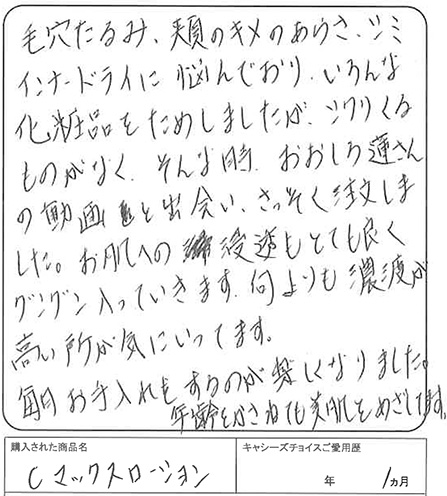 毛穴たるみ、頬のキメのあらさ、シミ
インナードライに悩んでおり、いろんな
化粧品をためしましたが、シックリくる
ものがなく、そんな時、おおしろ蓮さん
の動画と出会い、さっそく注文しま
した。お肌への浸透もとても良く
グングン入っていきます。何よりも濃度が
高い所が気にいってます。
毎日お手入れをするのが楽しくなりました。
年齢をかさねても美肌をめざしてます。
購入された商品名
キャシーズチョイスご愛用歴
Cマックスローション
年 1ヵ月